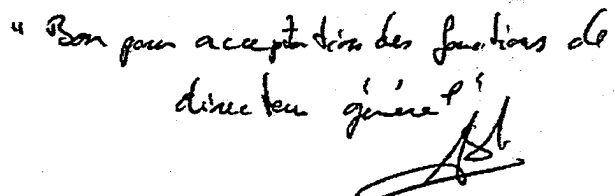 " Bon pour acceptation des fonctions de
directeur général "